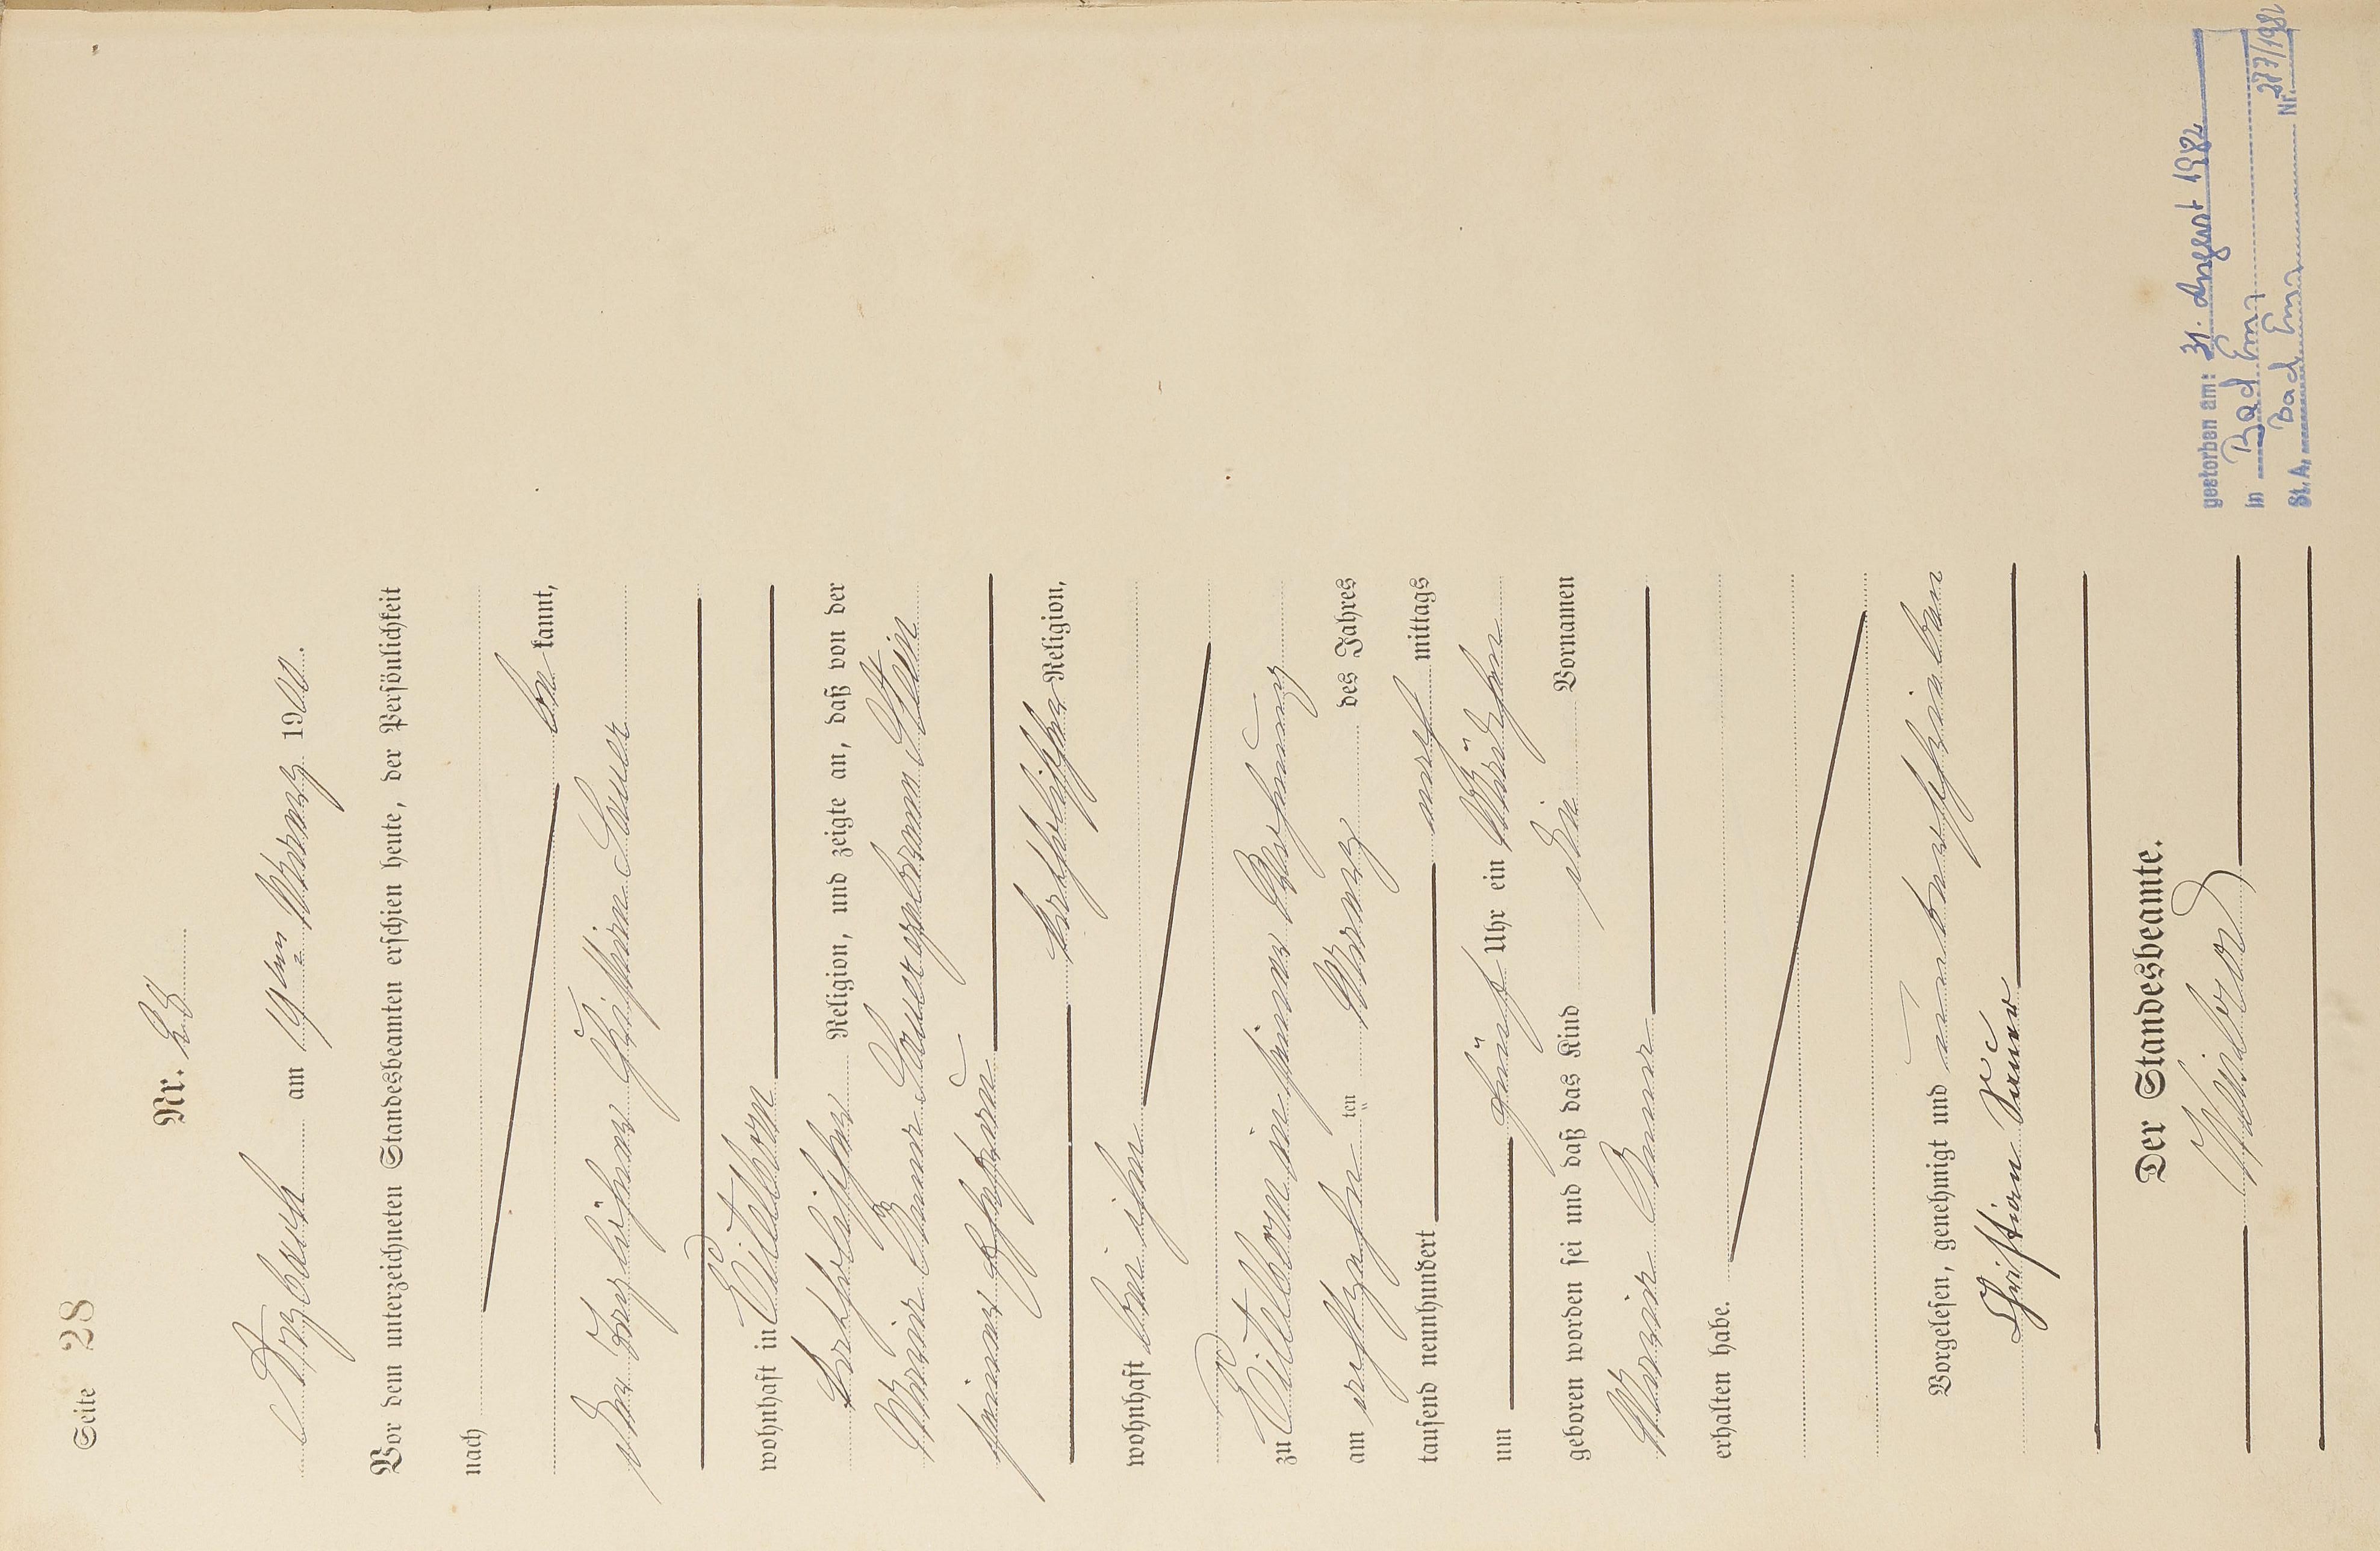 Seite 28
Nr. 28
Arzbach am 19ten März 1900.
Vor dem unterzeichneten Standesbeamten erschien heute, der Persönlichkeit
nach
be kannt,
der Christian Sauer
wohnhaft in Eitelborn
katholischer Religion, und zeigte an, daß von der
Maria Anna Sauer geborenen Stein
seiner Ehefrau
katholischer Religion,
wohnhaft bei ihm
zu Eitelborn in seiner Wohnung
am achtzehnten März des Jahres
tausend neunhundert nach mittags
um fünf Uhr ein Mädchen
geboren worden sei und daß das Kind die Vornamen
Maria Anna
erhalten habe.
Vorgelesen, genehmigt und unterschrieben
Christian Sauer
Der Standesbeamte.
gestorben am: 31. August 1982
in Bad Ems
St. A. Bad Ems Nr. 277/1982